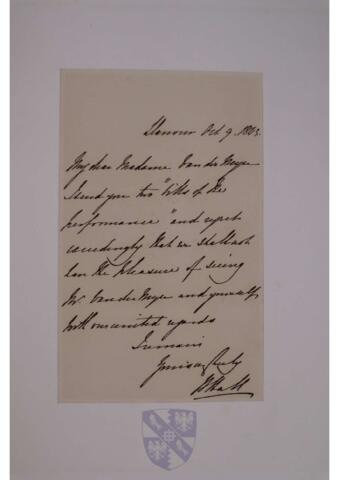 Hanover Oct 9. 1863.
My dear Madame Van der Meyer
I send you two "bills of the
performance" and regret
exceedingly that we shall not
have the pleasure of seeing
Mr. Van der Meyer and yourself,
with our united regards
I remain
Yours very truly